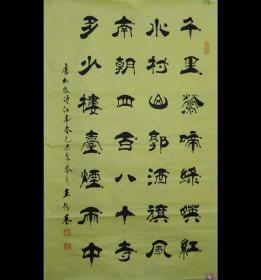 千里鶯啼綠暎紅
水村山郭酒旗風
南朝四百八十寺
多少樓臺煙雨中
唐杜牧詩江南春